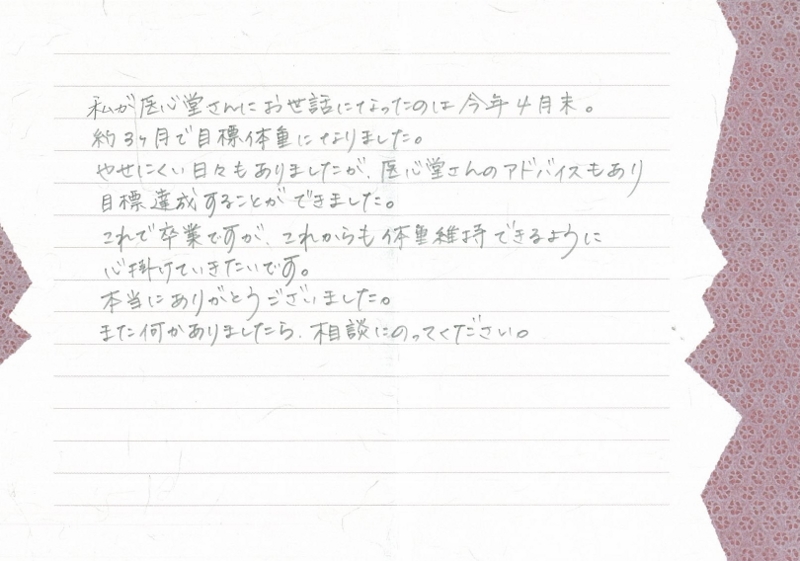 私が医心堂さんにお世話になったのは今年4月末。
約3ヶ月で目標体重になりました。
やせにくい日々もありましたが、医心堂さんのアドバイスもあり
目標達成することができました。
これで卒業ですが、これからも体重維持できるように
心掛けていきたいです。
本当にありがとうございました。
また何かありましたら、相談にのってください。